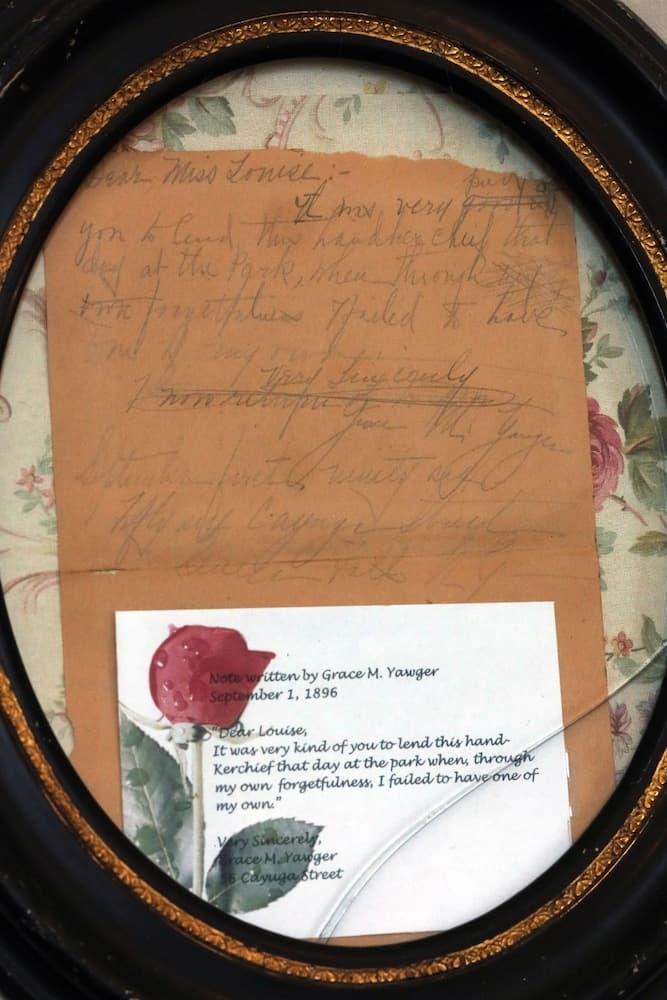 Dear Miss Louise:-
It was very
you to lend this handkerchief that
day at the Park, when through
forgetfulness I failed to have
one of my own.
Very Sincerely
September first, ninety six
Cayuga Street
Note written by Grace M. Yawger
September 1, 1896
"Dear Louise,
It was very kind of you to lend this hand-
Kerchief that day at the park when, through
my own forgetfulness, I failed to have one of
my own."
Very Sincerely,
Grace M. Yawger
6 Cayuga Street